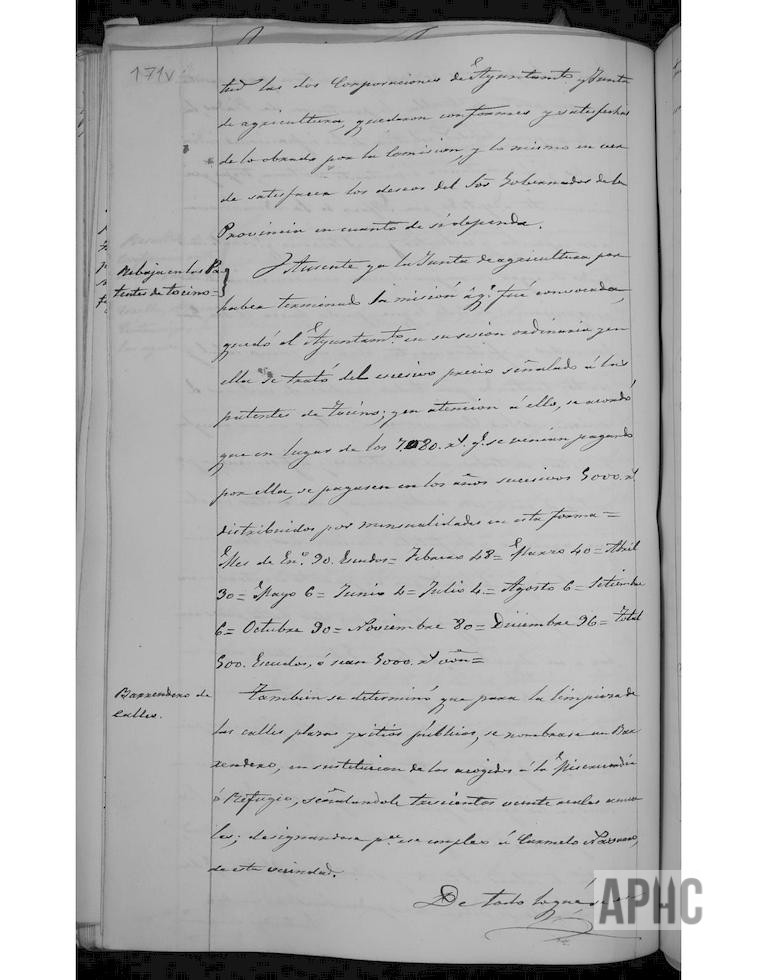 171v
tud las dos Corporaciones de Ayuntamto y Junta
de agricultura, quedaron conformes y satisfechas
de lo obrado por la Comision, y lo mismo en
de satisfacer los deseos del Sor Gobernador de la
Provincia en cuanto de si dependa.
Rebaja en los Pa-
tentes de tocino=
Ausente ya la Junta de agricultura por
haber terminado la mision á qe fué convocada,
quedó el Ayuntamto en su sesion ordinaria y en
ella se trató del escesivo precio señalado á las
patentes de tocino; y en atencion á ello, se acordó
que en lugar de los 7.080. rs. qe se venian pagando
por ella, se pagasen en los años sucesivos 5000. rs
distribuidos por mensualidades en esta forma=
Mes de Eno. 90. Escudos= Febrero 48= Marzo 40= Abril
30= Mayo 6= Junio 4= Julio 4= Agosto 6= Setiembre
6= Octubre 90= Noviembre 80= Diciembre 96= Total
500. Escudos, ó sean 5000. rs von=
Barrendero de
calles.
Tambien se determinó que para la limpieza de
las calles plazas y sitios públicos, se nombrase un Bar
rendero, en sustitucion de los acogidos á la Misericordia
ó Refugio, señalandole trescientos veinte reales anua
les; designandose pa ese empleo á Carmelo Navarro,
de esta vecindad.
De todo lo que se
APHC